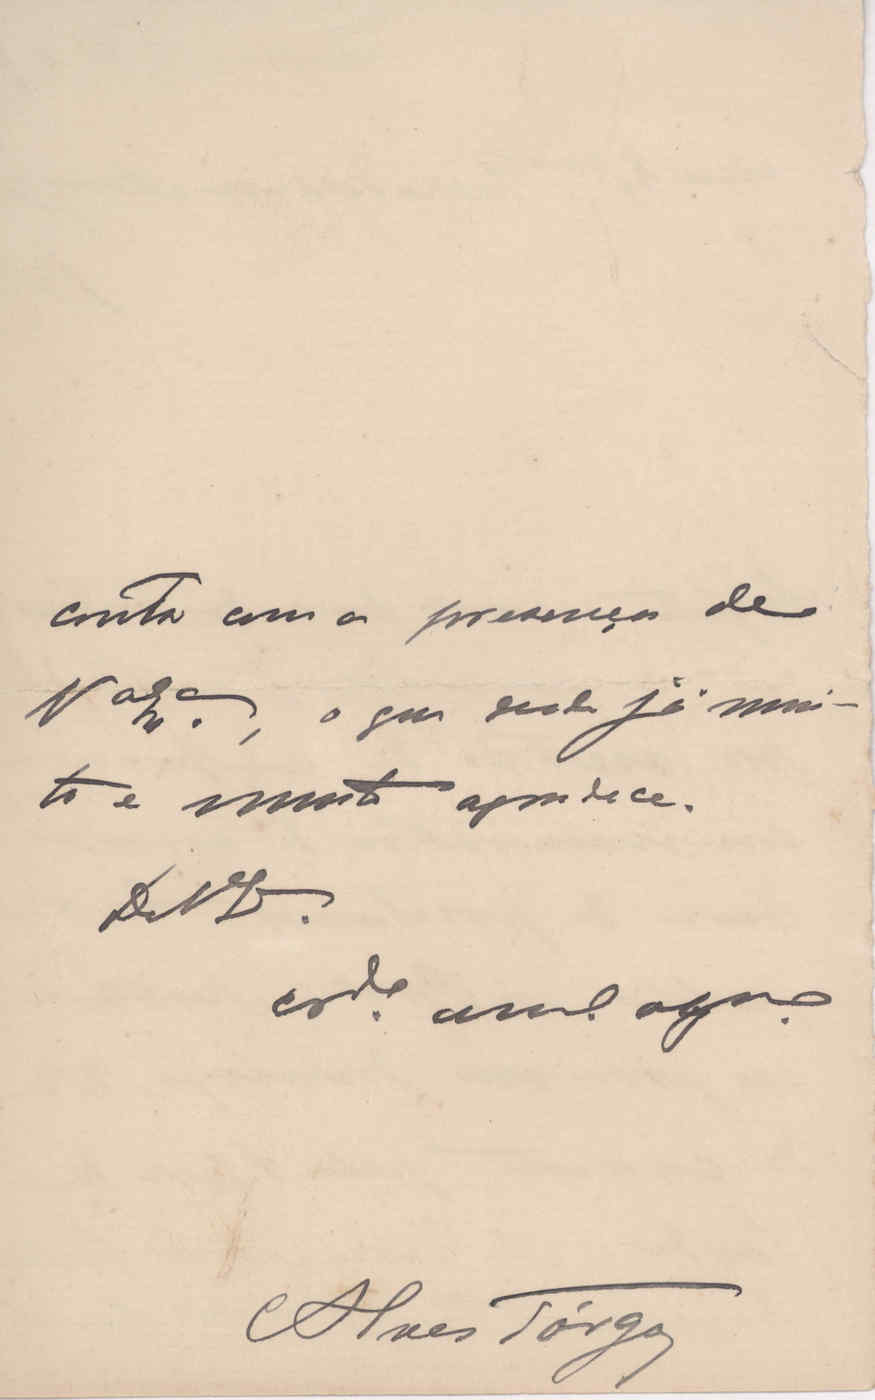 conta com a presença de
V. Exca., o que desde já mui-
to e muito agradece.
De V. Ex.
crdo. am. agr.
Alves Tórgo